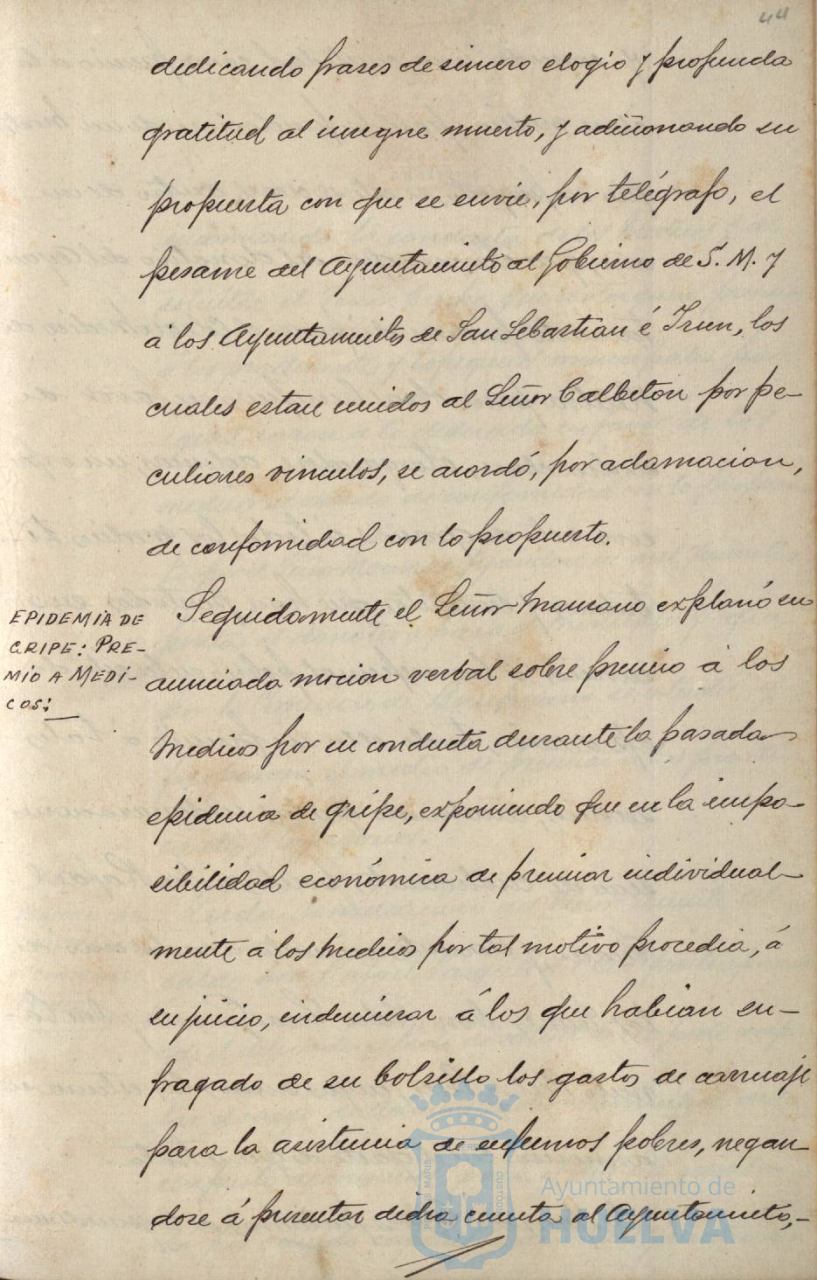 44
dedicando frases de sincero elogio y profunda
gratitud al insigne muerto, y adiccionando su
propuesta con que se envie, por telégrafo, el
pesame del Ayuntamiento al Gobierno de S. M. y
á los Ayuntamientos de San Sebastian é Irun, los
cuales estan unidos al Señor Calbeton por pe-
culiares vinculos, se acordó, por aclamacion,
de conformidad con lo propuesto.
EPIDEMIA DE
GRIPE: PRE-
MIO A MEDI-
COS:
Seguidamente el Señor Manzano explanó su
anunciada mocion verbal sobre premio á los
Medicos por su conducta durante la pasada
epidemia de gripe, exponiendo que en la impo-
sibilidad económica de premiar individual-
mente á los Medicos por tal motivo procedia, á
su juicio, indemnizar á los que habian su-
fragado de su bolsillo los gastos de carruaje
para la asistencia de enfermos pobres, negan-
dose á presentar dicha cuenta al Ayuntamiento,-
Ayuntamiento de
HUELVA